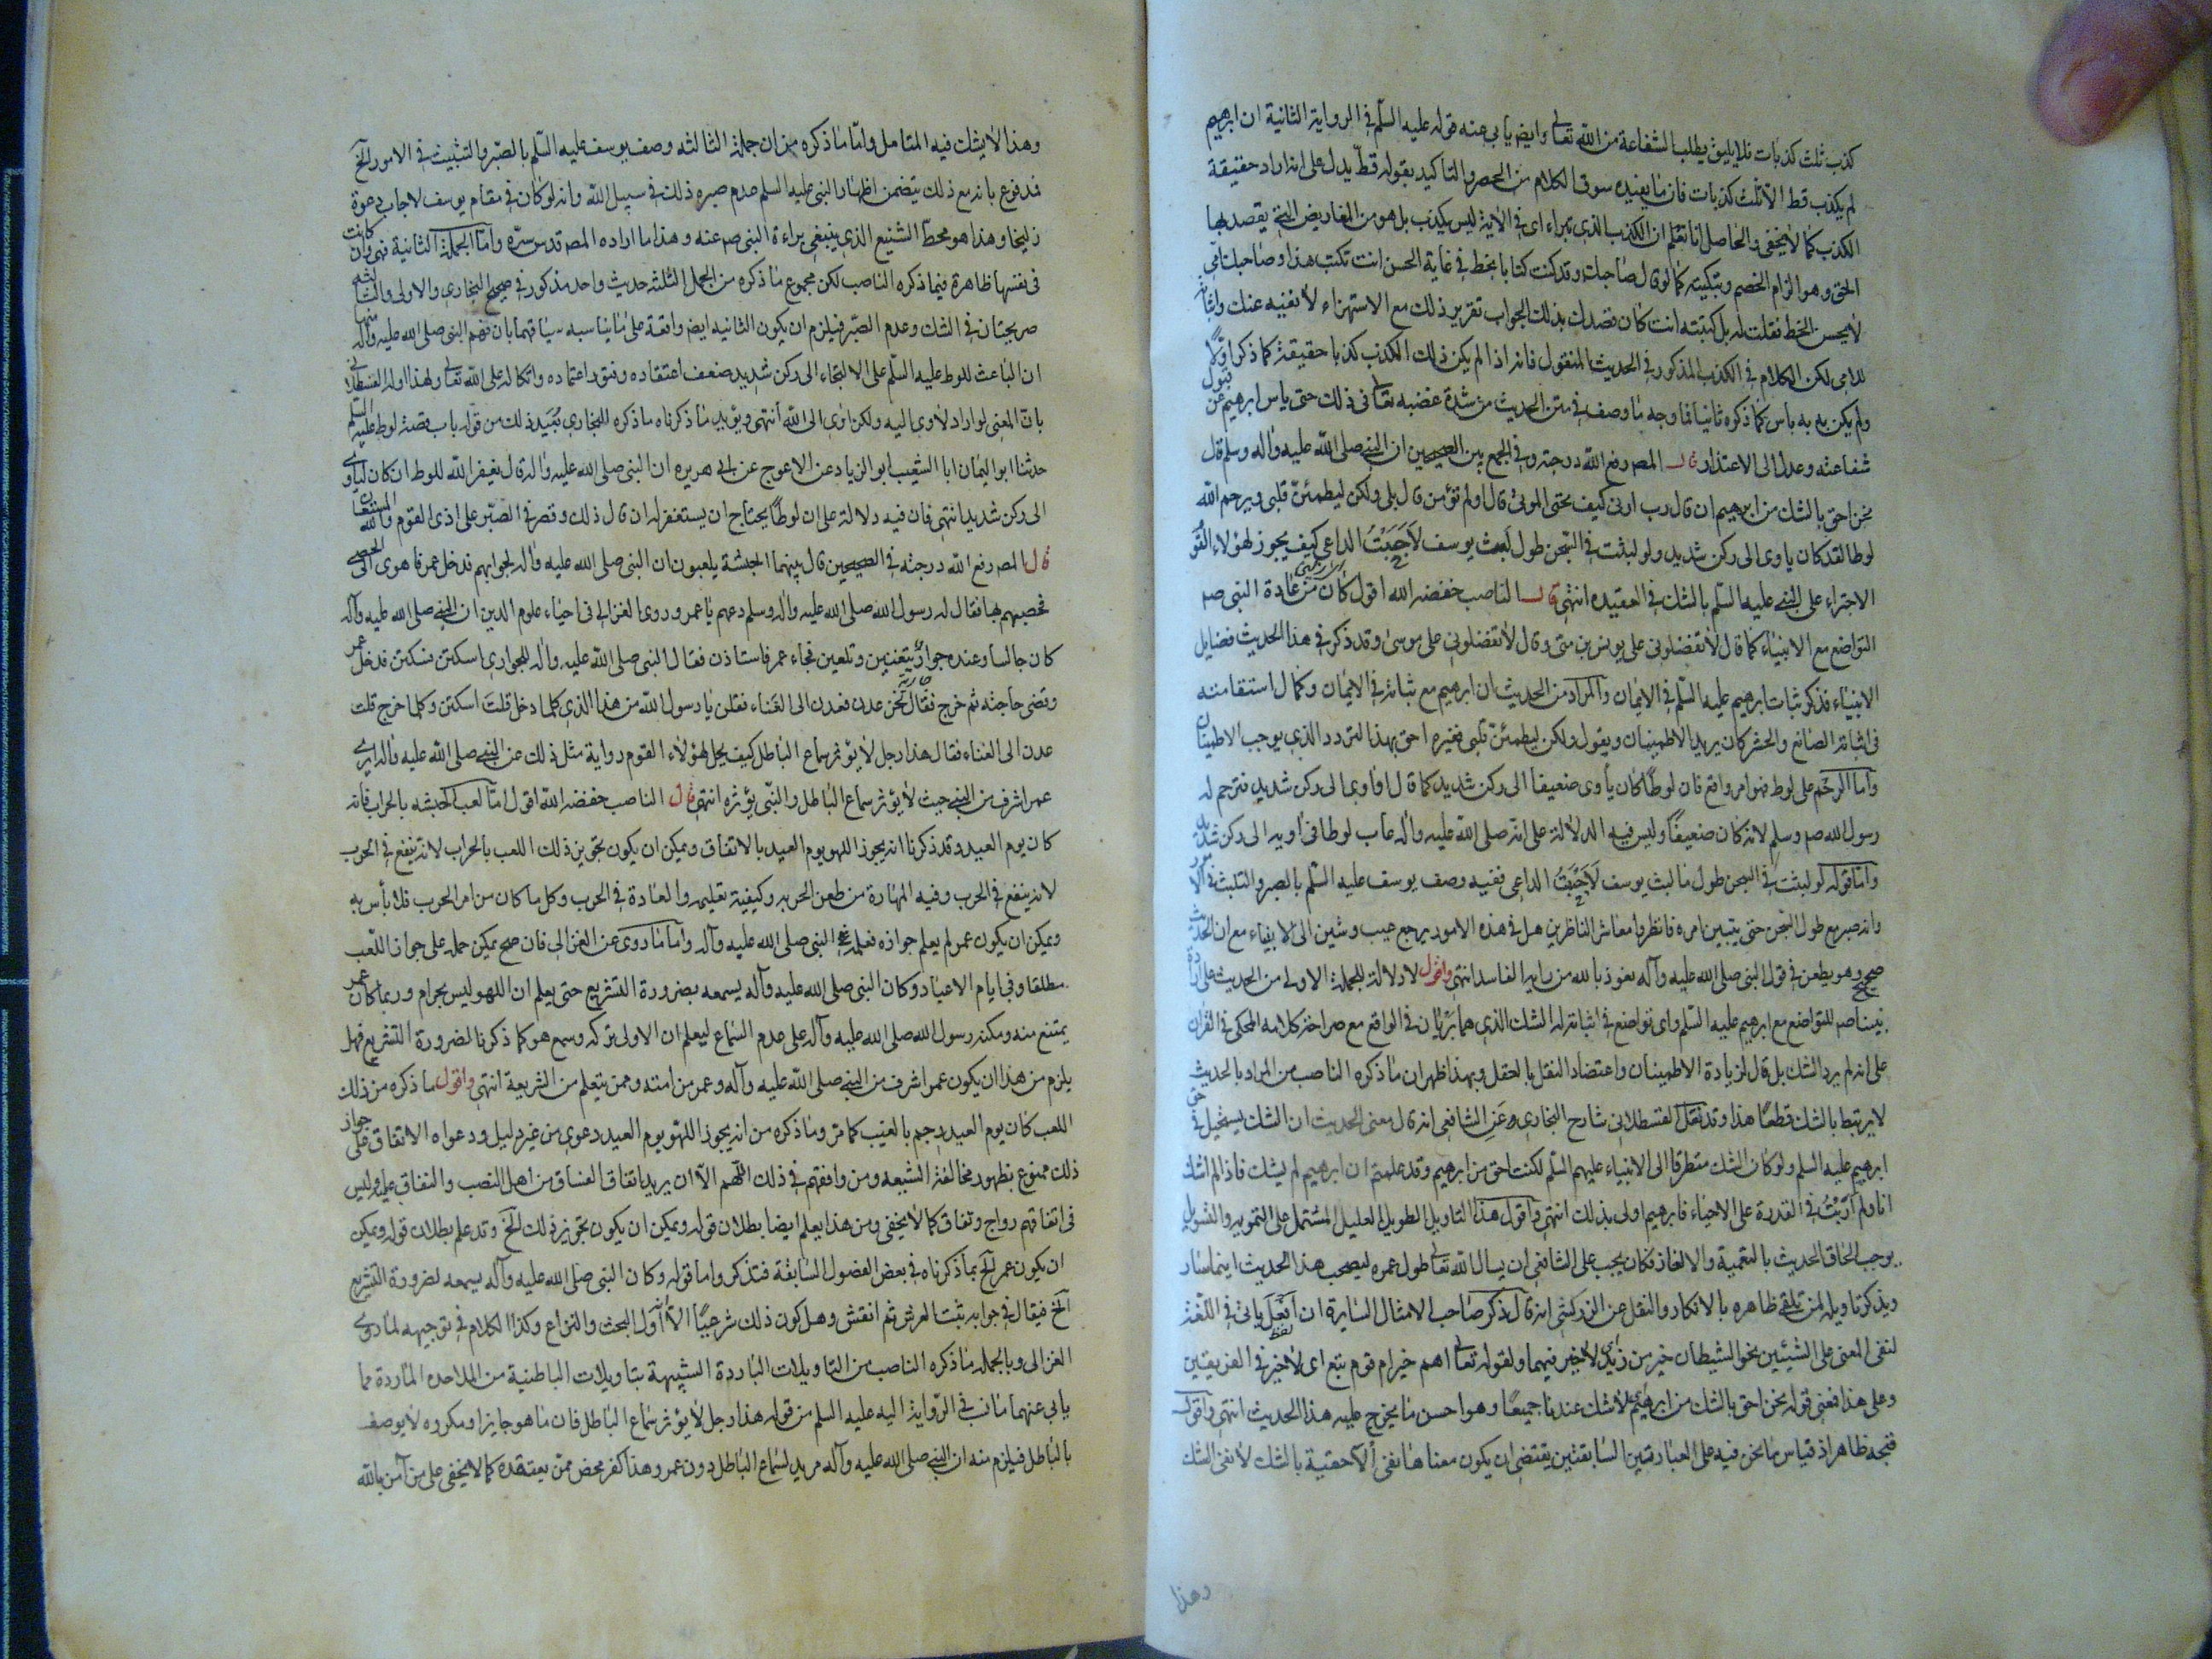 كذب ثلث كذبات فلا يليق يطلب الشفاعة من الله تعالى وايض يابى عنه قوله عليه السلم في الرواية الثانية ان ابرهيم
لم يكذب قط الا ثلث كذبات فان ما يفيده سوق الكلام من الحصر والتاكيد بقوله قط يدل على انه اراد حقيقة
الكذب كما لا يخفى والحاصل انا نعلم ان الكذب الذي تبراءى في الاية ليس بكذب بل هو من المعاريض التي يقصد بها
الحق وهو الزام الخصم وتبكيته كما لو قال صاحبك وقد كنت كتابا بخط في غاية الحسن انت تكتب هذا وصاحبك امي
لا يحسن الخط فقلت له بل كتبته انت كان قصدك بذلك الجواب تقرير ذلك مع الاستهزاء لا نفيه عنك واثباته
للامي لكن الكلام في الكذب المذكور في الحديث المنقول فانه اذا لم يكن ذلك الكذب كذبا حقيقة كما ذكر اولًا
ولم يكن به باس كما ذكره ثانيا فما وجه ما وصف في متن الحديث من شدة غضبه تعالى في ذلك حتى ياس ابرهيم عن قبول
شفاعته وعدل الى الاعتذار قال المص رفع الله درجته وفي الجمع بين الصحيحين ان النبي صلى الله عليه واله وسلم قال
نحن احق بالشك من ابرهيم ان قال رب ارني كيف تحيى الموتى قال اولم تؤمن قال بلى ولكن ليطمئن قلبي ويرحم الله
لوطا لقد كان ياوى الى ركن شديد ولو لبثت في السجن طول لبث يوسف لاجبتُ الداعي كيف يجوز لهؤلاء القوم
الاجتراء على النبي عليه السلم بالشك في العقيده انتهى قال الناصب خفضه الله اقول كان من عادة النبي صم
التواضع مع الانبياء كما قال لا تفضلوني على يونس بن متى وقال لا تفضلوني على موسى وقد ذكر في هذا الحديث فضايل
الانبياء فذكر ثبات ابرهيم عليه السلم في الايمان والمراد من الحديث ان ابرهيم مع ثباته في الايمان وكمال استقامته
في اثباته الصانع والحشر كان يريد الاطمينان ويقول ولكن ليطمئن قلبي فغيره احق بهذا التردد الذي يوجب الاطمينان
واما الرحم على لوط فهو امر واقع فان لوطا كان ياوى ضعيفا الى ركن شديد كما قال او اوى الى ركن شديد فترحم له
رسول الله صم وسلم لانه كان ضعيفًا وليس فيه الدلالة على انه صلى الله عليه واله عاب لوطا في اويه الى ركن شديد
واما قوله لو لبثت في السجن طول ما لبث يوسف لاجبتُ الداعي ففيه وصف يوسف عليه السلم بالصبر والتلبث في الامور
وانه صبر مع طول السجن حتى يتبين امره فانظروا معاشر الناظرين هل في هذه الامور يرجع عيب وشين الى الانبياء مع ان الحديث
صحيح وهو يطعن في قول النبي صلى الله عليه وآله نعوذ بالله من رايه الفاسد انتهى واقول لا دلالة للجملة الاولى من الحديث على ارادة
نبينا صم للتواضع مع ابرهيم عليه السلم واى تواضع في اثباته له الشك الذي هما بريان في الواقع مع صراحة كلامه المحكى في القران
على انه لم يرد الشك بل قال لزيادة الاطمينان واعتضاد النقل بالعقل وبهذا ظهر ان ما ذكره الناصب من المراد بالحديث
لا يرتبط بالشك قطعًا هذا وقد نقل القسطلاني شارح البخاري وعن الشافعي انه قال معنى الحديث ان الشك يستحيل في حق
ابرهيم عليه السلم ولو كان الشك متطرقا الى الانبياء عليهم السلم لكنت احق من ابرهيم وقد علمتم ان ابرهيم لم يشك فاذا لم اشك
انا ولم ارتب في القدرة على الاحياء فابرهيم اولى بذلك انتهى واقول هذا التاويل الطويل العليل المشتمل على التمويه والتسويل
يوجب الحاق الحديث بالتعمية والالغاز فكان يجب على الشافعي ان يسال الله تعالى طول عمره ليصحب هذا الحديث اينما سار
ويذكر تاويله لمن تلقى ظاهره بالانكار والنقل عن الزركشي انه قال ذكر صاحب الامثال السايرة ان افعل ياتي في اللغة
لنفى المعنى على الشيئين نحو الشيطان خير من زيد اى لا خير فيهما وكقوله تعالى اهم خير ام قوم تبع اى لا خير في الفريقين
وعلى هذا فمعنى قوله نحن احق بالشك من ابرهيم لا شك عندنا جميعًا وهو احسن ما يخرج عليه هذا الحديث انتهى واقول
فيه ظاهر اذ قياس ما نحن فيه على العبارتين السابقتين يقتضى ان يكون معناها نفى الاحقية بالشك لا نفى الشك
وهذا
وهذا لا يشك فيه المتامل واما ما ذكره من ان جملة الثالثه وصف يوسف عليه السلم بالصبر والتثبيت في الامور الخ
فمدفوع بانه مع ذلك يتضمن اظهار النبي عليه السلم عدم صبره ذلك في سبيل الله وانه لو كان في مقام يوسف لاجاب دعوة
زليخا وهذا هو محط الشنيع الذي ينبغي براءة النبي صم عنه وهذا ما اراده المص قدس سره واما الجملة الثانية فهي وان كانت
في نفسها ظاهرة فيما ذكره الناصب لكن مجموع ما ذكره من الجمل الثلثه حديث واحد مذكور في صحيح البخاري والاولى والثالثه
صريحتان في الشك وعدم الصبر فيلزم ان يكون الثانيه ايض واقعة على ما يناسبه سياقهما بان فهم النبي صلى الله عليه وآله منها
ان الباعث للوط عليه السلم على الالتجاء الى ركن شديد ضعف اعتقاده وفتور اعتماده واتكاله على الله تعالى ولهذا اوله القسطلاني
بان المعنى لو اراد لاوى اليه ولكن اوى الى الله انتهى ويؤيد ما ذكرناه ما ذكره البخاري بُعَيد ذلك من قوله باب قصة لوط عليه السلم
حدثنا ابو اليمان ابا الشعيب ابو الزياد عن الاعوج عن ابي هريره ان النبي صلى الله عليه واله قال يغفر الله للوط ان كان لياوى
الى ركن شديد انتهى فان فيه دلالة على ان لوطًا يحتاج ان يستغفر له ان قال ذلك وقصر في الصبر على اذى القوم والله المستعان
قال المص رفع الله درجته في الصحيحين قال بينهما الحبشة يلعبون ان النبي صلى الله عليه واله بحرابهم فدخل عمر فاهوى الى الحصى
فحصبهم بها فقال له رسول الله صلى الله عليه واله وسلم دعهم يا عمر وروى الغزالي في احياء علوم الدين ان النبي صلى الله عليه وآله
كان جالسا وعنده جوار يتغنين وتلعبن فجاء عمر فاستاذن فقال النبي صلى الله عليه واله للجواري اسكتن فسكتن فدخل عمر
وقضى حاجته ثم خرج فقال لهن عدن فعدن الى الغناء فقلن يا رسول الله من هذا الذي كلما دخل قلت اسكتن وكلما خرج قلت
عدن الى الغناء فقال هذا رجل لا يؤثر سماع الباطل كيف يحل لهؤلاء القوم رواية مثل ذلك عن النبي صلى الله عليه واله ايرى
عمر اشرف من النبي حيث لا يؤثر سماع الباطل والنبي يؤثره انتهى قال الناصب خفضه الله اقول اما لعب الحبشه بالحراب فانه
كان يوم العيد وقد ذكرنا انه يجوز اللهو يوم العيد بالاتفاق ويمكن ان يكون تجويز ذلك اللعب بالحراب لانه ينفع في الحرب
لانه ينفع في الحرب وفيه المهارة من طعن الحربه وكيفية تعليمه والعادة في الحرب وكل ما كان من امر الحرب فلا بأس به
ويمكن ان يكون عمر لم يعلم جوازه فعلمه النبي صلى الله عليه وآله واما ما روى عن الغزالي فان صح يمكن حمله على جواز اللعب
مطلقا وفي ايام الاعياد وكان النبي صلى الله عليه وآله يسمعه بضرورة التشريع حتى يعلم ان اللهو ليس بحرام وربما كان عمر
يمتنع منه ومكنه رسول الله صلى الله عليه وآله على عدم السماع ليعلم ان الاولى تركه وسمع هو كما ذكرنا لضرورة التشريع فهل
يلزم من هذا ان يكون عمر اشرف من النبي صلى الله عليه وآله وعمر من امته وممن يتعلم من الشريعة انتهى واقول ما ذكره من ذلك
اللعب كان يوم العيد رجم بالغيب كما مر وما ذكره من انه يجوز اللهو يوم العيد دعوى من غير دليل ودعواه الاتفاق على جواز
ذلك ممنوع بظهور مخالفة الشيعه ومن وافقهم في ذلك اللهم الا ان يريد اتفاق الفساق من اهل النصب والنفاق عليه وليس
في اتفاقهم رواج ونفاق كما لا يخفى ومن هذا يعلم ايضا بطلان قوله ويمكن ان يكون تجويز ذلك الخ وقد علم بطلان قوله ويمكن
ان يكون عمر الخ بما ذكرناه في بعض الفضول السابقة فتذكر واما قوله وكان النبي صلى الله عليه وآله يسمعه لضرورة التشريع
الخ فيقال في جوابه ثبت العرش ثم انقش وهل كون ذلك شرعيًا الا اول البحث والنزاع وكذا الكلام في توجيهه لما روى
الغزالي وبالجمله ما ذكره الناصب من التاويلات الباردة الشبيهة بتاويلات الباطنية من الملاحده الماردة مما
يابى عنهما ما نب في الرواية اليه عليه السلم من قوله هذا رجل لا يؤثر سماع الباطل فان ما هو جايز او مكروه لا يوصف
بالباطل فيلزم منه ان النبي صلى الله عليه وآله مريد لسماع الباطل دون عمر وهذا كفر محض ممن يعتقده كما لا يخفى على من آمن بالله